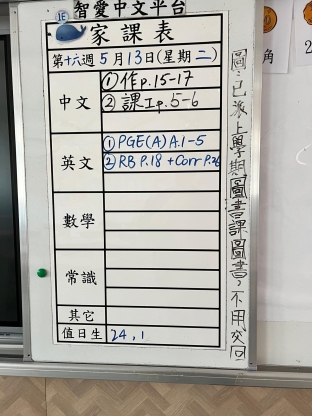 1E
智愛中文平台
家課表
第十六週5月13日(星期二)
中文
①作p.15-17
②課工p.5-6
英文
①PGE(A)A.1-5
②RB P.18 + Corr P.
數學
常識
其它
值日生
24, 1
圖:已派上學期圖書課圖書,不用交回
角